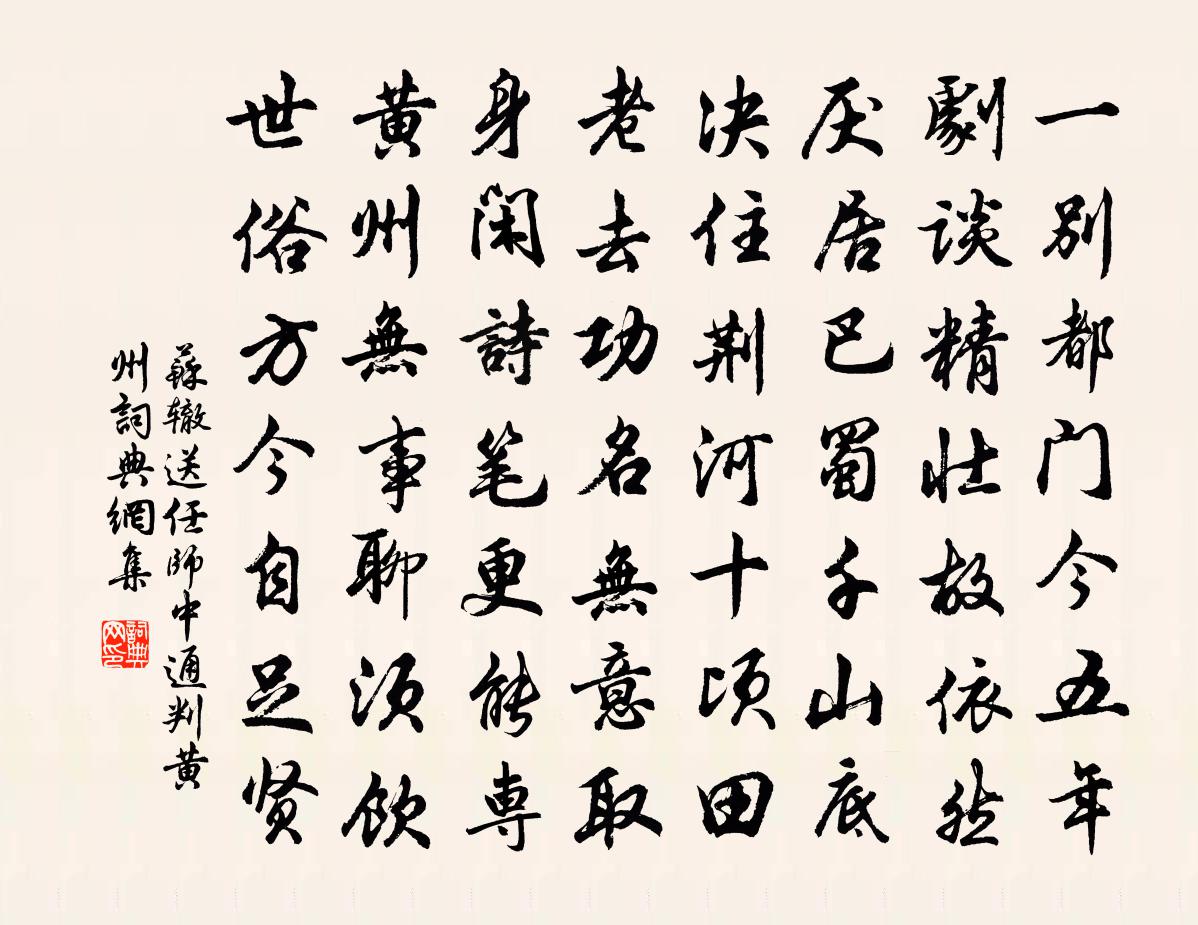 一别都门今五年
劇谈精壮故依然
厌居巴蜀千山底
决住荆河十顷田
老去功名無意取
身闲詩笔更能専
黄州無事聊须饮
世俗方今自足贤
蘇辙送任師中通判黄
州詞典網集
詞典
网印